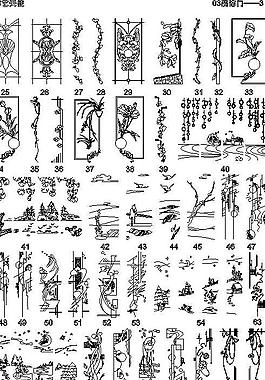 25 26 27 28 29 30 31 32 33
4 35 36 37 38 39 40
41 42 43 44 45 46 47
48 49 50 51 52 53 54 63